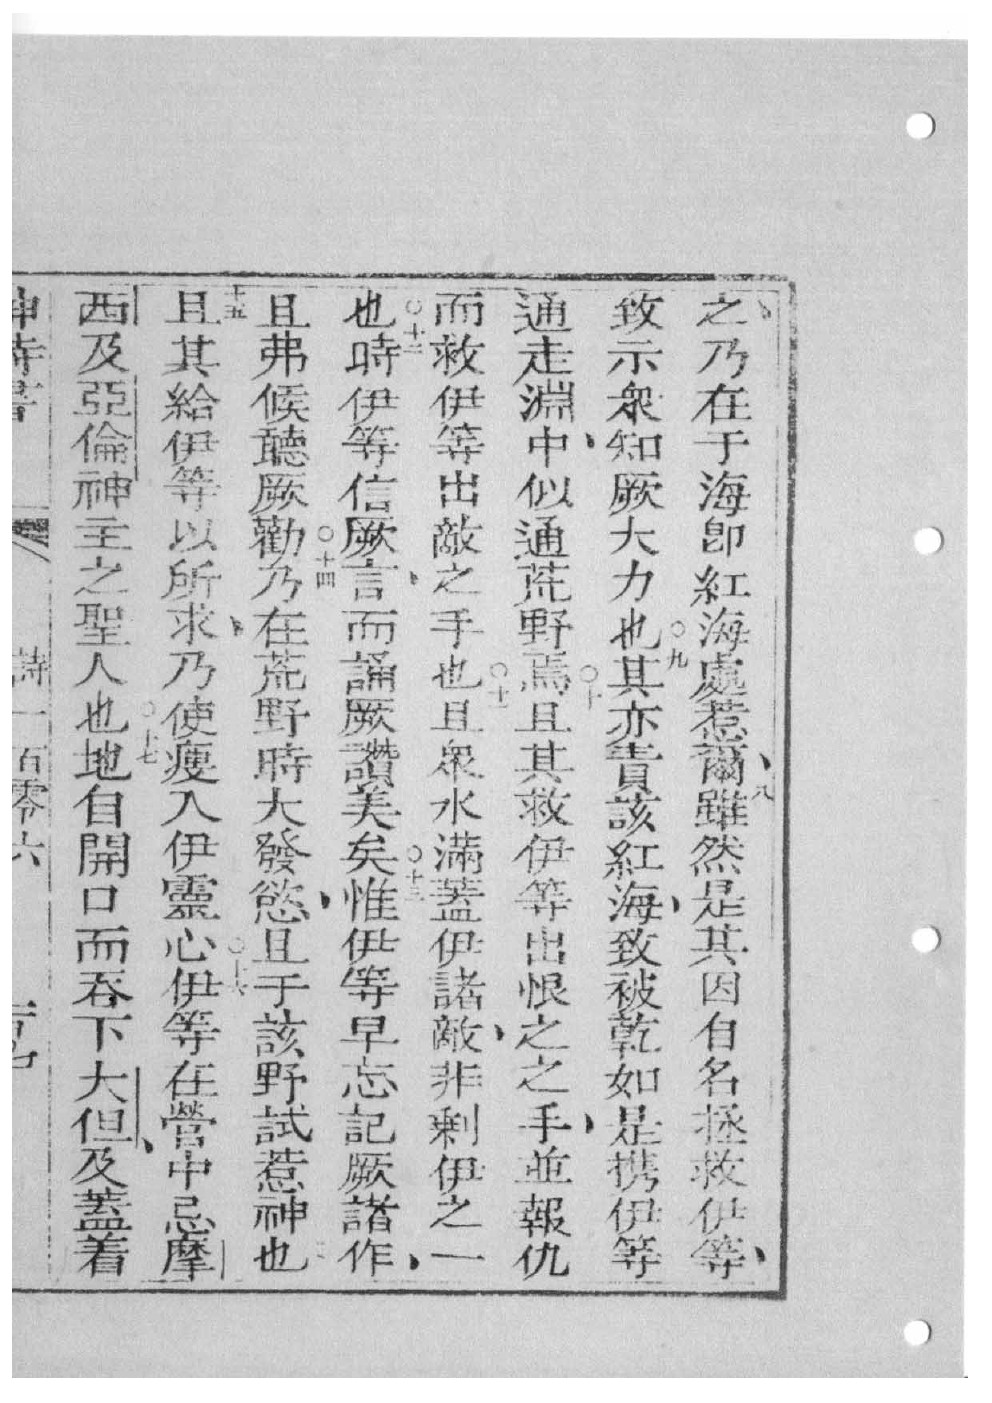 之乃在于海卽紅海處惹爾、八雖然是其因自名拯救伊等、
致示衆知厥大力也○九其亦責該紅海、致被乾如是携伊等
通走淵中、似通荒野焉○十且其救伊等出恨之之手、並報仇
而救伊等出敵之手也○十一且衆水滿蓋伊諸敵、非剩伊之一
也○十二時伊等信厥言、而誦厥讚美矣○十三惟伊等早忘記厥諸作、
且弗候聽厥勸○十四乃在荒野時大發慾、且于該野試惹神也
十五且其給伊等以所求、乃使瘦入伊靈心○十六伊等在營中忌摩
西及亞倫神主之聖人也○十七地自開口而吞下大但、及蓋着
神詩書 詩一百零六